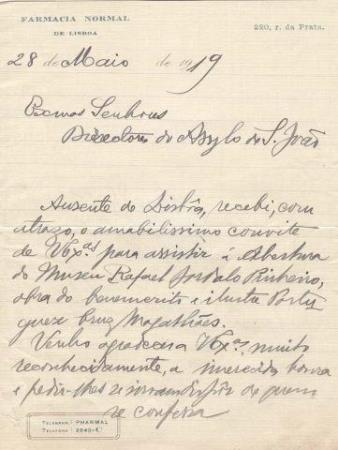 FARMACIA NORMAL
DE LISBOA
220, r. da Prata.
28 de Maio de 1919
Exmos Senhores
Directores do Asylo de S. João
Ausente de Lisbôa, recebi, com
atrazo, o amabilissimo convite
de V.Exas para assistir á Abertura
do Museu Rafael Bordalo Pinheiro,
obra do benemerito e ilustre Portu
guez Cruz Magalhães.
Venho agradecer a V.Exas, muito
reconhecidamente, a mercida honra
e pedir-lhes se sirvam dispôr de quem
se confessa
TELEGRAMAS PHARMAL
TELEFONE